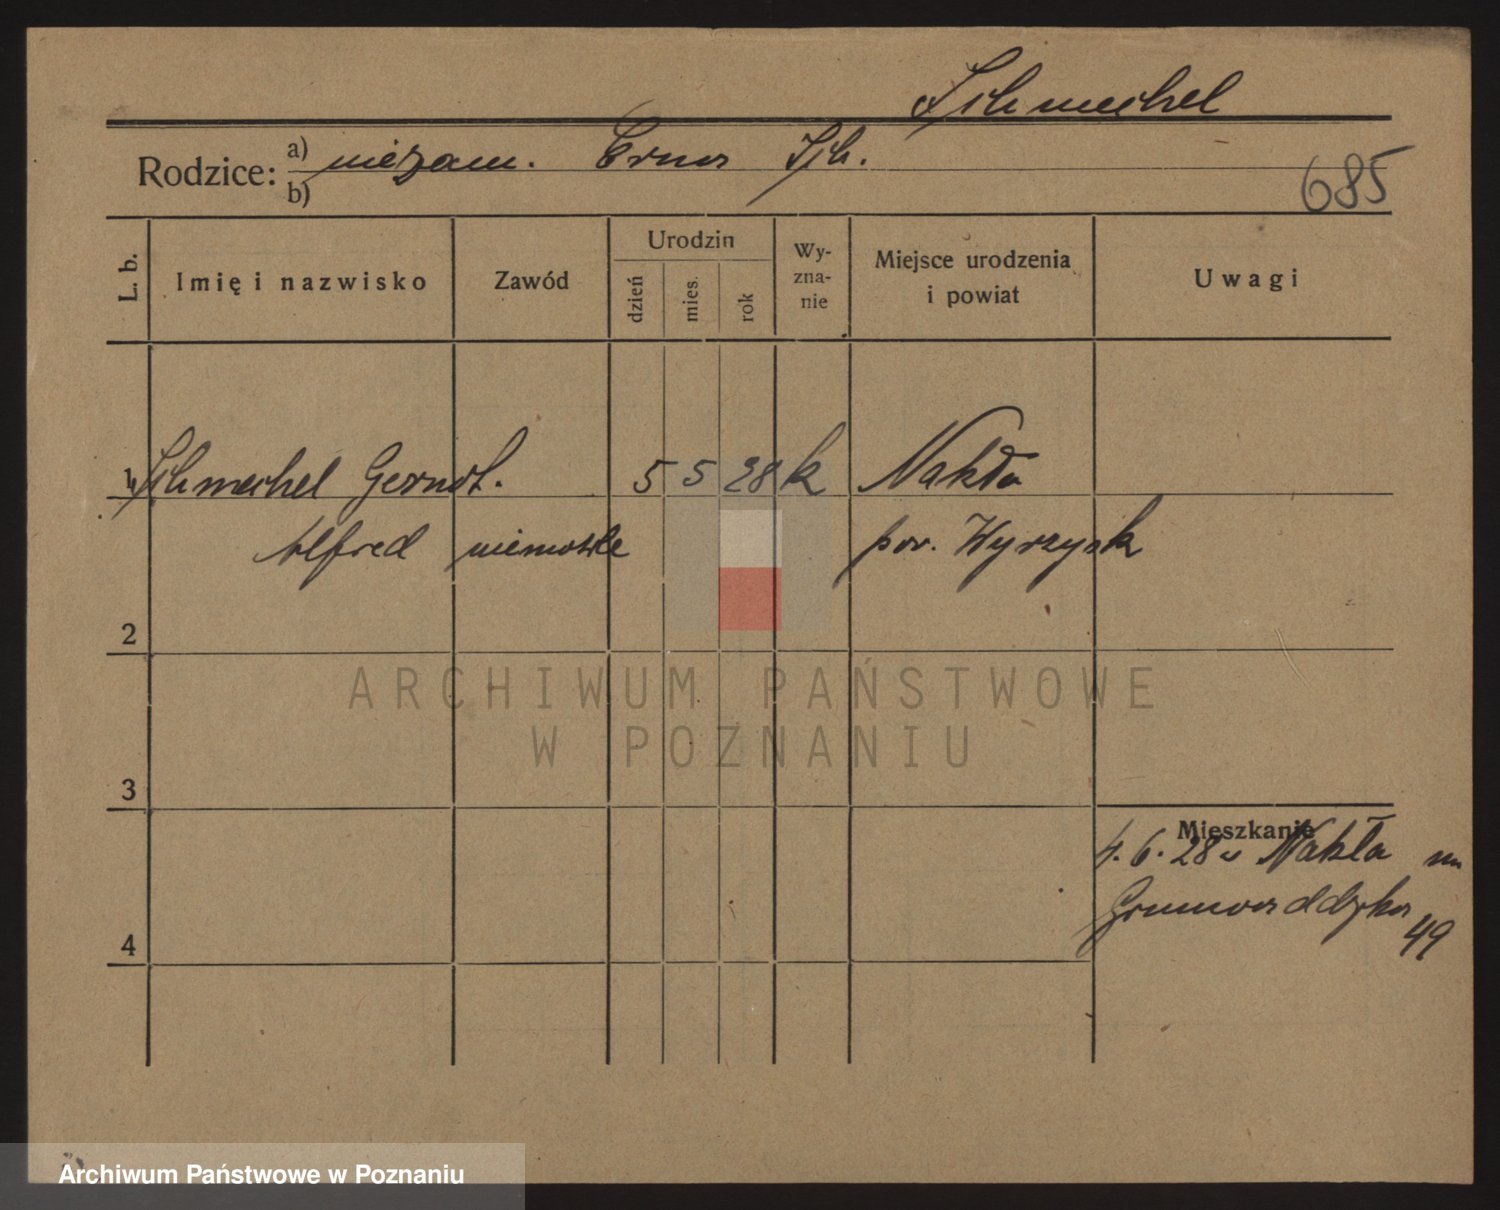 Schmechel
Rodzice: a) niezam. Erna Sch.
b)
685
L. b.
Imię i nazwisko
Zawód
Urodzin
dzień
mies.
rok
Wy-
zna-
nie
Miejsce urodzenia
i powiat
Uwagi
1 Schmechel 5 5 28 k Nakło
Alfred niemowlę pow. Wyrzysk
2
ARCHIWUM PAŃSTWOWE
W POZNANIU
3
Mieszkanie
4. 6. 28 Nakło
49
4
Archiwum Państwowe w Poznaniu